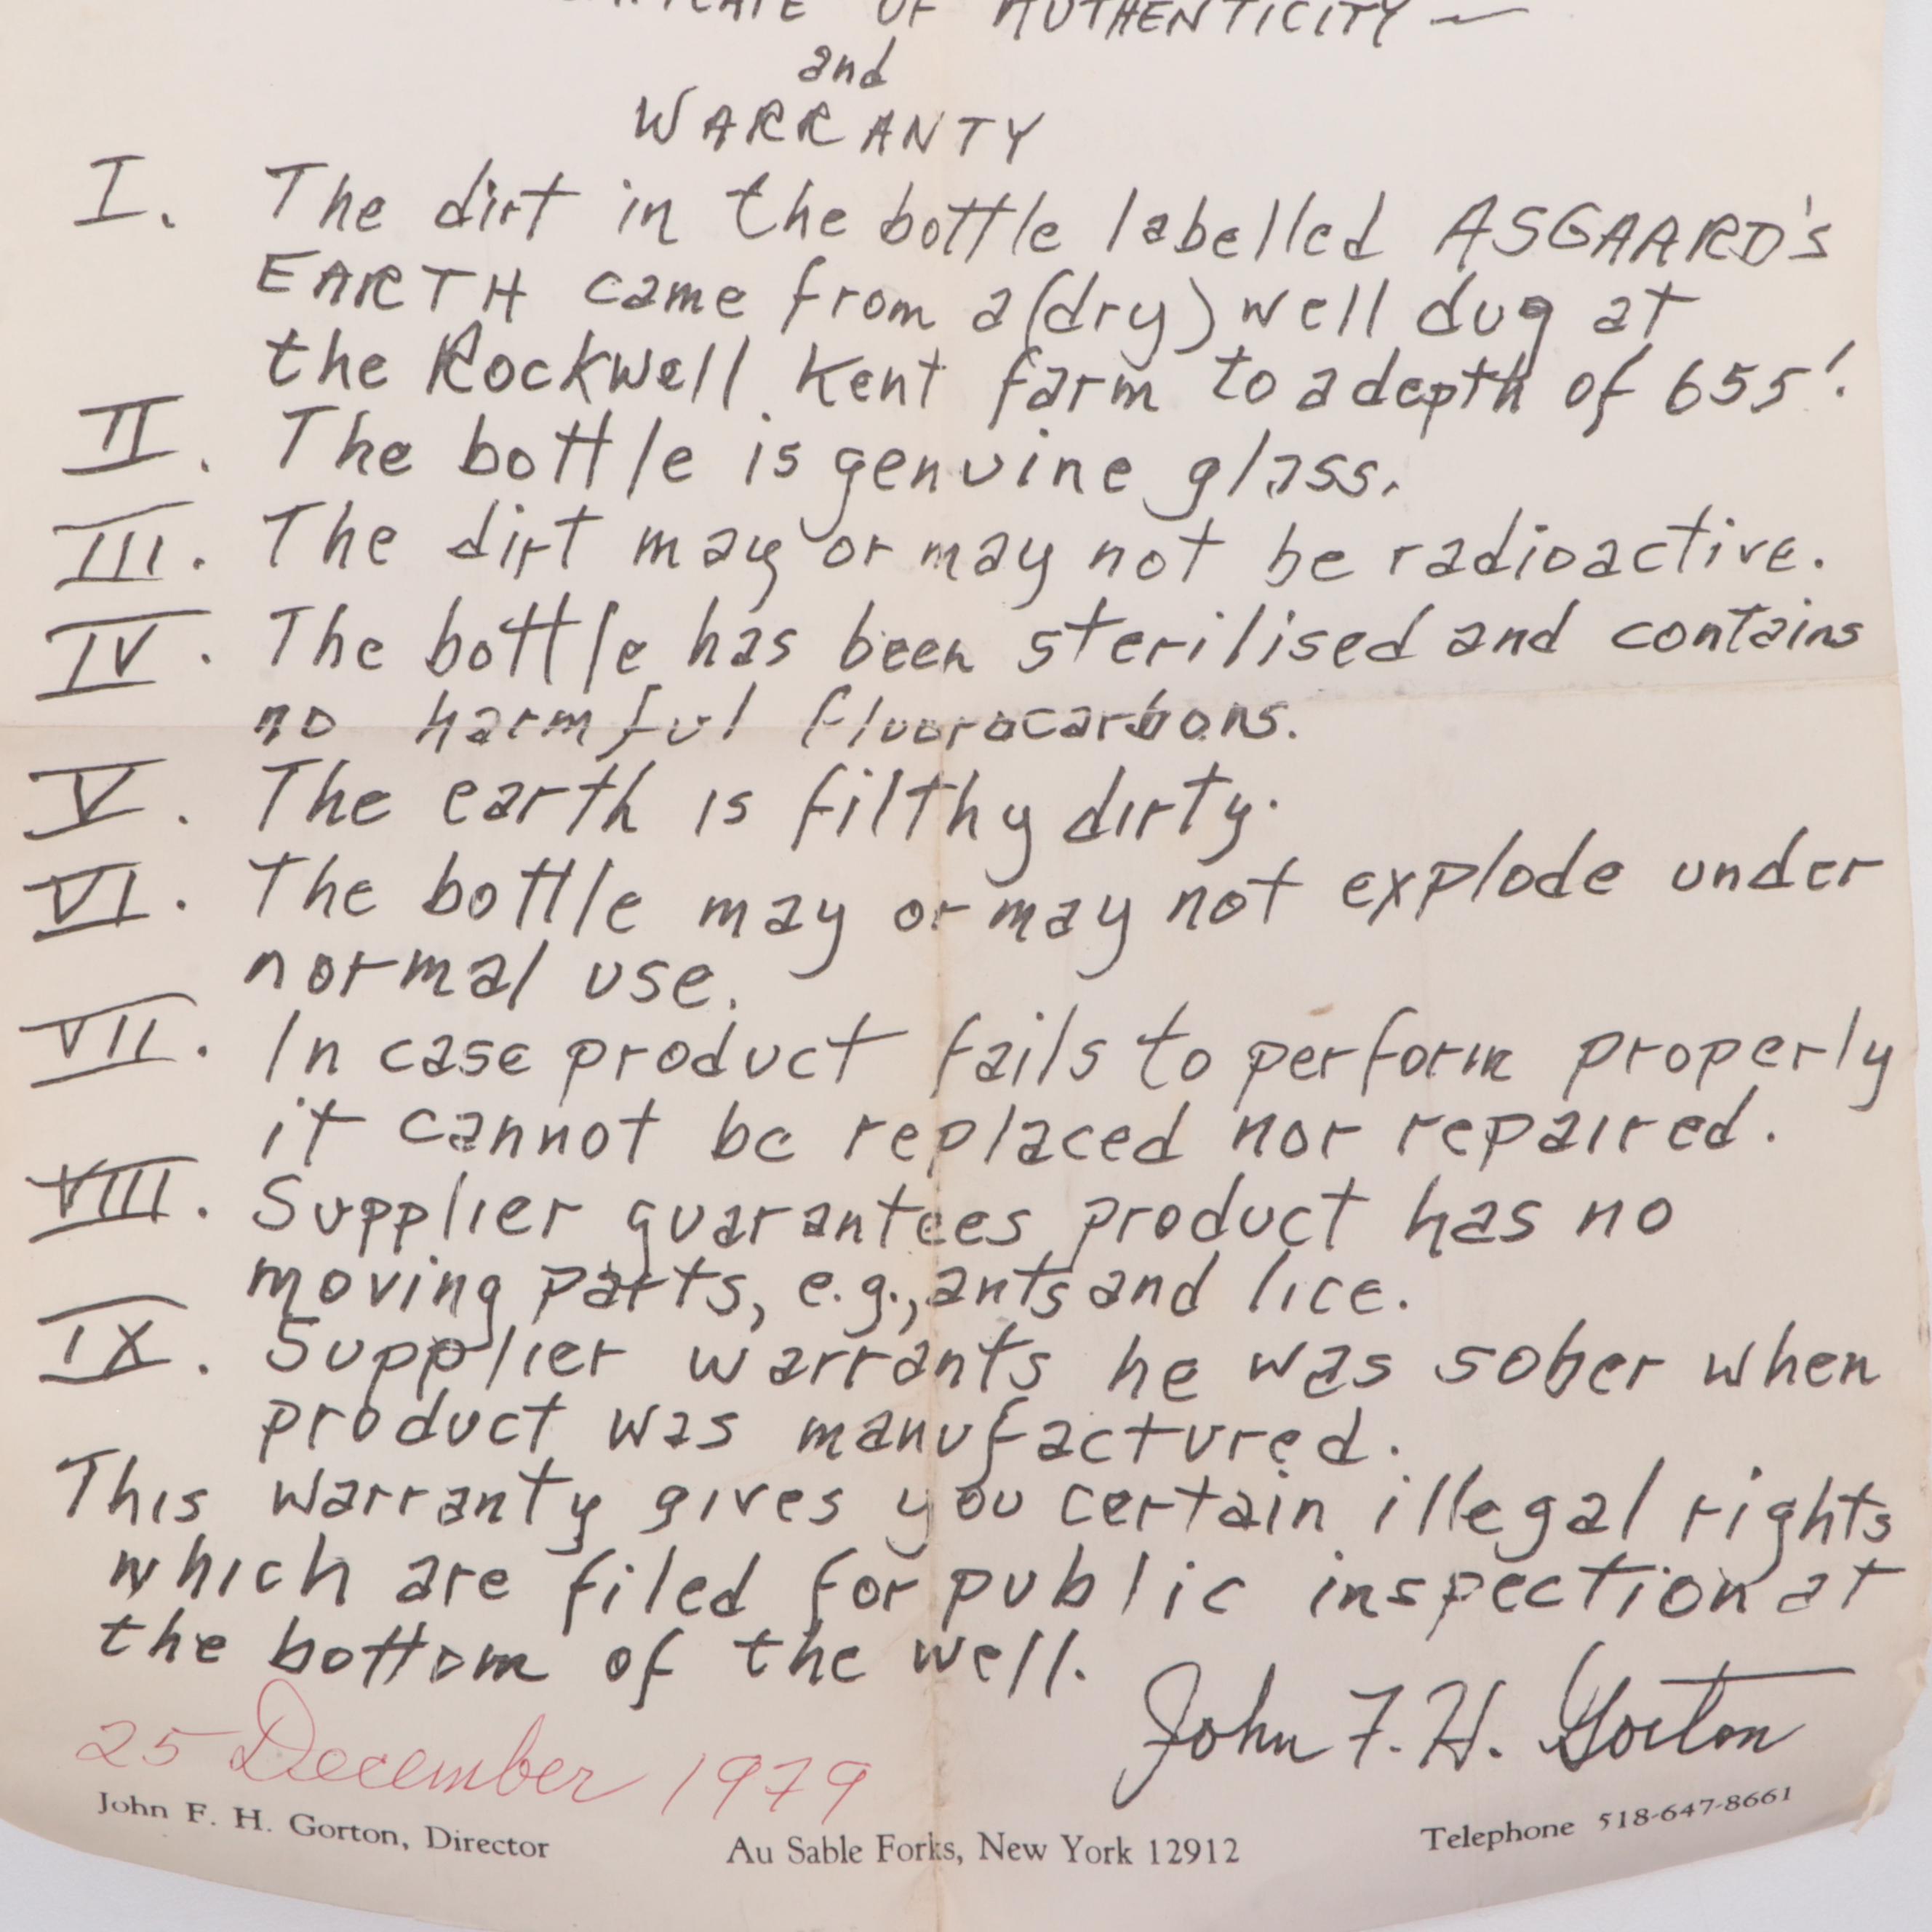 OF AUTHENTICITY —
and
WARRANTY
I. The dirt in the bottle labelled ASGAARD's
EARTH came from a (dry) well dug at
the Rockwell Kent farm to a depth of 655'.
II. The bottle is genuine glass.
III. The dirt may or may not be radioactive.
IV. The bottle has been sterilised and contains
no harmful fluorocarbons.
V. The earth is filthy dirty.
VI. The bottle may or may not explode under
normal use.
VII. In case product fails to perform properly
it cannot be replaced nor repaired.
VIII. Supplier guarantees product has no
moving parts, e.g., ants and lice.
IX. Supplier warrants he was sober when
product was manufactured.
This warranty gives you certain illegal rights
which are filed for public inspection at
the bottom of the well.
John F. H. Gorton
25 December 1979
John F. H. Gorton, Director Au Sable Forks, New York 12912 Telephone 518-647-8661